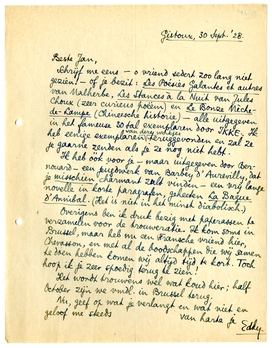 Gistoux, 30 Sept. '28.
Beste Jan,
Schrijf me eens – o vriend sedert zoo lang niet
gezien! – of je bezit: Les Poésies Galantes et autres
van Malherbe, Les Stances à la Nuit van Jules
Choux (zeer curieus poëem) en La Bonze Mèche-
de-Lampe (Chineesche historie) – alle uitgegeven
in het fameuse 30 tal exemplaren door IKKE. Ik
heb eenige exemplaren van deze uitgaven teruggevonden en zal ze
je gaarne zenden als je ze nog niet hebt.
Ik heb ook voor je – maar uitgegeven door Ber-
nouard – een jeugdwerk van Barbey d'Aurevilly, dat
je misschien charmant zult vinden – een vrij lange
novelle in korte paragrafen, geheeten La Bague
d'Annibal. (Het is niet in het minst diabolisch.)
Overigens ben ik druk bezig met paperassen te
verzamelen voor de trouweratie. Ik kom soms in
Brussel, maar heb nu een Fransche vriend hier,
Chevasson, en met al de boodschappen die wij samen
te doen hebben komen wij altijd tijd te kort. Toch
hoop ik je zeer spoedig terug te zien!
Het wordt trouwens wel wat koud hier; half
October zijn we vmdl. in Brussel terug.
Nu, geef op wat je verlangt en wat niet en
geloof me steeds
van harte je Eddy